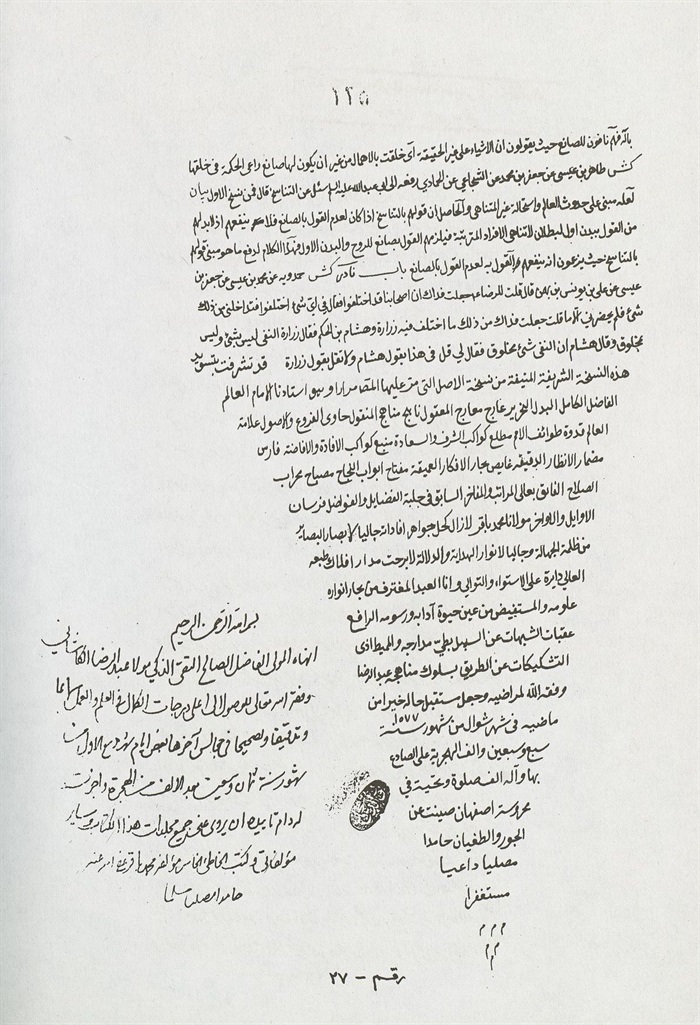 ١٢٥
بآلة فهم نافون للصانع حيث يقولون ان الاشياء على غير الحقيقة اى خلقت بالاهمال من غير ان يكون لها صانع راعى الحكمة فى خلقها
كش طاهر بن عيسى عن جعفر بن محمد عن الشجاعي عن الحمادي رفعه الى ابى عبدالله عليه السلم سئل عن التناسخ قال فمن نسخ الاول بيان
لعله مبنى على حدوث العالم واستحالة غير المتناهى والحاصل ان قولهم بالتناسخ اذا كان لعدم القول بالصانع فلا ينفعهم اذ لابد لهم
من القول ببدن اول لبطلان لاتناهى الافراد المترتبة فيلزمهم القول بصانع للروح والبدن الاول فهذا الكلام لدفع ما هو مبنى قولهم
بالتناسخ حيث يزعمون انه ينفعهم القول به لعدم القول بالصانع باب نادر كش حمدويه عن محمد بن عيسى عن جعفر بن
عيسى عن على بن يونس بن بهمن قال قلت للرضا ع جعلت فداك ان اصحابنا قد اختلفوا فقال فى اى شئ اختلفوا فتداخلنى من ذلك
شئ فلم يحضرنى الا ما قلت جعلت فداك من ذلك ما اختلف فيه زرارة وهشام بن الحكم فقال زرارة النفى ليس بشئ وليس
بمخلوق وقال هشام ان النفى شئ مخلوق فقال لى قل فى هذا بقول هشام ولا تقل بقول زرارة قد تشرفت بتسويد
هذه النسخة الشريفة المنيفة من نسخة الاصل التى مر عليها المصنف مرارا وهو استاذنا الامام العالم
الفاضل الكامل البدل النحرير عارج معارج المعقول ناهج مناهج المنقول حاوى الفروع والاصول علامة
العالم قدوة طوائف الامم مطلع كواكب الشرف والسعادة منبع كواكب الافادة والافاضة فارس
مضمار الانظار الدقيقه غايص بحار الافكار العميقة مفتاح ابواب النجاح مصباح محراب
الصلاح الفائق بمعالى المراتب والمفاخر السابق فى حلبة الفضايل والفواضل فرسان
الاوايل والاواخر مولانا محمد باقر لازال كحل جواهر افاداته جاليا لابصار البصائر
من ظلمة الجهالة وجاليا لانوار الهداية والدلالة لابرحت مدار افلاك طبعه
العالى دايرة على الاستواء والتوالى وانا العبد المغترف من بحار انواره
علومه والمستفيض من عين حيوة آدابه ورسومه الرافع
عقبات الشبهات عن السبيل بطى مدارجه والمميط اذى
التشكيكات عن الطريق بسلوك مناهجه عبد الرضا
وفقه الله لمراضيه وجعل مستقبل حاله خيرا من
ماضيه فى شهر شوال من شهور سنة ١٥٧٧
سبع وسبعين والف الهجرية على الصادع
بها وآله الف صلوة وتحية فى
محروسة اصفهان صينت عن
الجور والطغيان حامدا
مصليا داعيا
مستغفرا
م م م
م م
م
بسم الله الرحمن الرحيم
انهاه المولى الفاضل الصالح التقى الذكى مولانا عبد الرضا الكاشانى
وفقه الله تعالى للوصول الى اعلى درجات الكمال فى العلم والعمل سماعا
وتدقيقا وتصحيحا فى مجالس آخرها بعض ايام شهر ربيع الاول من
شهور سنة ثمان وسبعين بعد الالف من الهجرة واجزت
له دام تاييده ان يروى عنى جميع مجلدات هذا الكتاب وساير
مؤلفاتى وكتب الخاطئ الخاسر مؤلفه محمد باقر عفى الله عنه
حامدا مصليا مسلما
رقم - ٢٧